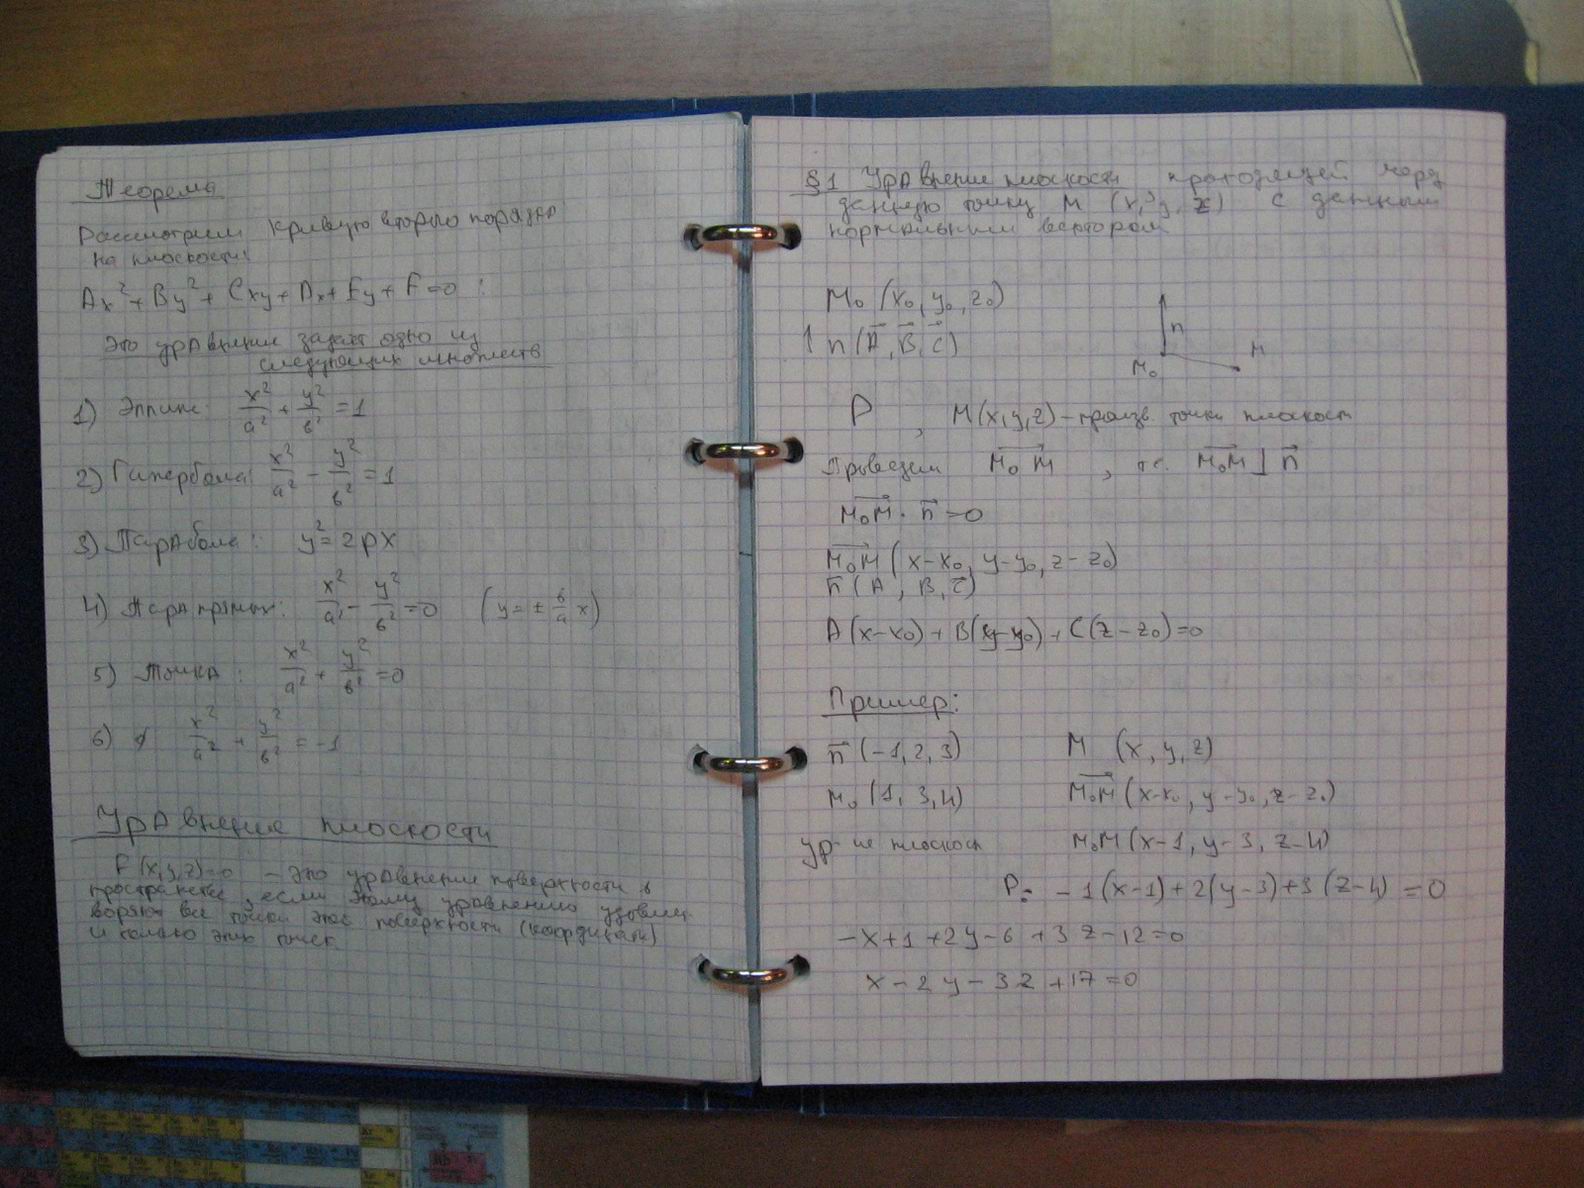 Теорема
Рассмотрим кривую второго порядка
на плоскости:
Ax²+By²+Cxy+Dx+Ey+F=0 :
Это уравнение задаёт одно из
следующих множеств
1) Эллипс: x²/a² + y²/b² = 1
2) Гипербола: x²/a² - y²/b² = 1
3) Парабола: y²=2px
4) Пара прямых: x²/a² - y²/b² = 0 (y = ± b/a x)
5) Точка: x²/a² + y²/b² = 0
6) ∅ x²/a² + y²/b² = -1
Уравнение плоскости
F(x,y,z)=0 - это уравнение поверхности в
пространстве, если этому уравнению удовлет-
воряют все точки этой поверхности (координаты)
и только этих точек.
§1 Уравнение плоскости проходящей через
данную точку M (x, y, z) с данным
нормальным вектором
M₀ (x₀, y₀, z₀)
n (A, B, C)
n
M₀ M
P, M(x,y,z) - произв. точка плоскост
Проведем M₀M, т.к. M₀M ⊥ n
M₀M · n = 0
M₀M (x-x₀, y-y₀, z-z₀)
n (A, B, C)
A(x-x₀) + B(y-y₀) + C(z-z₀) = 0
Пример:
n (-1, 2, 3) M (x, y, z)
M₀ (1, 3, 4) M₀M (x-x₀, y-y₀, z-z₀)
ур-ие плоскост M₀M (x-1, y-3, z-4)
P: -1(x-1)+2(y-3)+3(z-4) = 0
-x+1+2y-6+3z-12=0
x-2y-3z+17=0